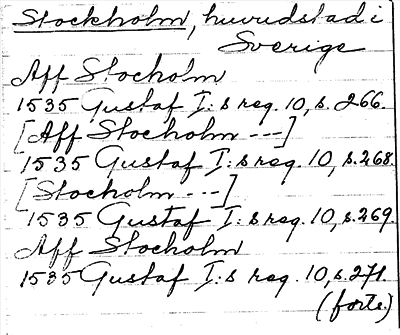 Stockholm, huvudstad i
Sverige
Aff Stocholm
1535 Gustaf I:s reg. 10, s. 266.
[Aff Stocholm ---]
1535 Gustaf I:s reg. 10, s. 268.
[Stocholm ---]
1535 Gustaf I:s reg. 10, s. 269.
Aff Stocholm
1535 Gustaf I:s reg. 10, s. 271.
(forts.)